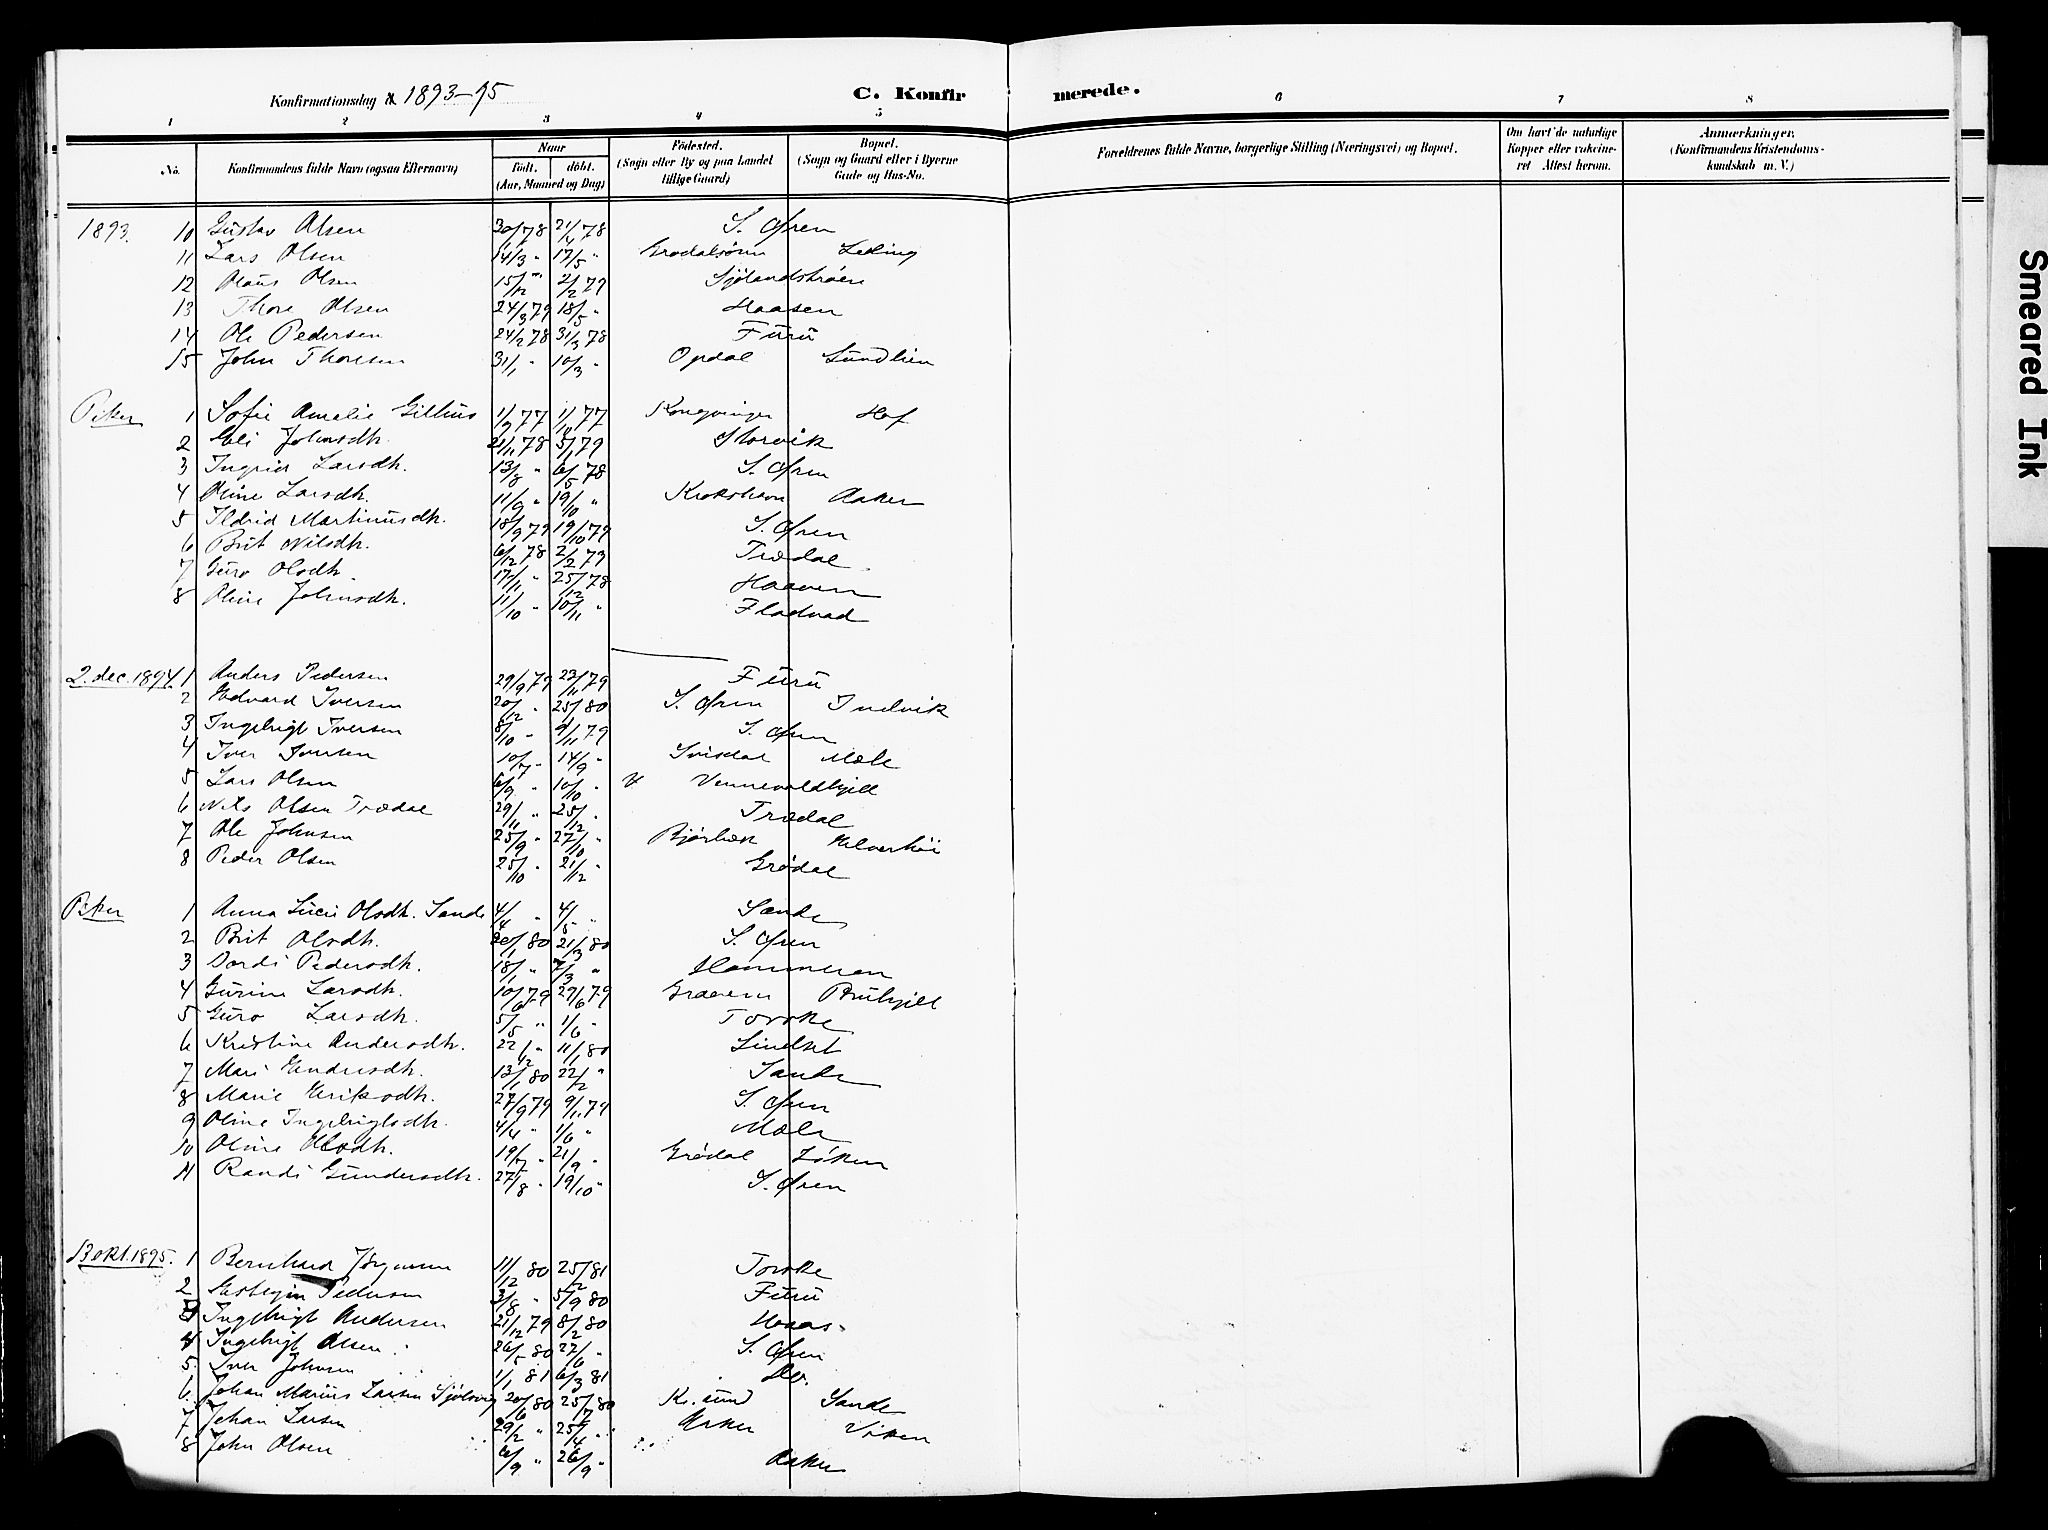 Konfirmationsdag 1893-95
C. Konfirmerede.
1 2 3 4 5 6 7 8
No. Konfirmandens fulde Navn (ogsaa Efternavn) Naar født. døbt. (Aar, Maaned og Dag) Fødested. (Sogn eller By og paa Landet tillige Gaard) Bopæl. (Sogn og Gaard eller i Byerne Gade og Hus-No. Forældrenes fulde Navne, borgerlige Stilling (Næringsvei) og Bopæl. Om havt de naturlige Kopper eller vakcineret Attest herom. Anmærkninger. (Konfirmandens Kristendomskundskab m. V.)
1893. 10 Gustav Olsen 30/1 78 21/4 78 S. Øren
11 Lars Olsen 14/3 " 17/5 " Grødalsøren
12 Olaus Olsen 15/12 " 2/2 79 Sjølandstrøen
13 Thore Olsen 24/3 79 18/5 " Haasen
14 Ole Pedersen 24/2 78 31/3 78 Furu
15 John Thoresen 31/1 " 10/3 " Opdal Sundlien
Piker 1 Sofie Amalie Gillius 1/9 77 77 Kongvinger Hof
2 Eli Johnsdtr. 21/11 78 5/1 79 Storvik
3 Ingrid Larsdtr. 13/3 " 6/5 78 S. Øren
4 Oline Larsdtr. 11/9 " 19/10 " Krokshavn Aaker
5 Ildrid Martinusdtr. 18/9 79 19/10 79 S. Øren
6 Brit Nilsdtr. 6/12 78 2/2 79 Trædal
7 Guro Olsdtr. 17/11 " 25/12 78 Haaven
8 Oline Johnsdtr. 11/10 " 10/11 " Fladvad
2. dec. 1894. 1 Anders Pedersen 29/9 79 23/11 79 Furu
2 Edvard Iversen 20/12 " 25/1 80 S. Øren Indvik
3 Ingebrigt Iversen 8/10 " 9/11 79 S. Øren
4 Iver Iversen 10/7 " 14/9 " Svisdal Mæle
5 Lars Olsen 6/9 " 10/10 " Vennevoldhjell
6 Nils Olsen Trædal 29/11 " 25/12 " Trædal
7 Ole Johnsen 25/9 " 27/10 " Bjørbæk
8 Peder Olsen 25/10 " 21/12 " Grødal
Piker 1 Anna Lucie Olsdtr. Sande 4/4 " 4/5 " Sande
2 Brit Olsdtr. 20/1 80 21/3 80 S. Øren
3 Dordi Pedersdtr. 18/1 " 7/3 " Hammeren
4 Gurine Larsdtr. 10/6 79 29/6 79 Graaem Bruhjell
5 Guro Larsdtr. 5/5 " 1/6 " Torske
6 Kristine Andersdtr. 22/12 " 11/1 80 Lindset
7 Mari Endresdtr. 13/1 80 22/2 " Sande
8 Marie Eriksdtr. 27/9 79 9/11 79 S. Øren
9 Oline Ingebrigtsdtr. 4/4 " 1/6 " Mæle
10 Oline Olsdtr. 19/7 " 21/9 " Grødal Løken
11 Randi Gundersdtr. 27/8 " 19/10 " S. Øren
13 okt. 1895. 1 Bernhard Jørgensen 11/12 80 25/2 81 Torske
2 Esten Pedersen 3/8 " 5/9 80 Furu
3 Ingebrigt Andersen 21/12 79 8/2 80 Haas
4 Ingebrigt Olsen 26/5 80 27/6 " S. Øren
5. Iver Johnsen 1/1 81 6/3 81 Do.
6. Johan Marius Larsen Sjølsvig 20/6 80 25/7 80 Kr. sund Sande
7 Johan Larsen 29/2 " 25/4 " Viken
8 John Olsen 6/9 " 26/9 " Aaker
Smeared Ink